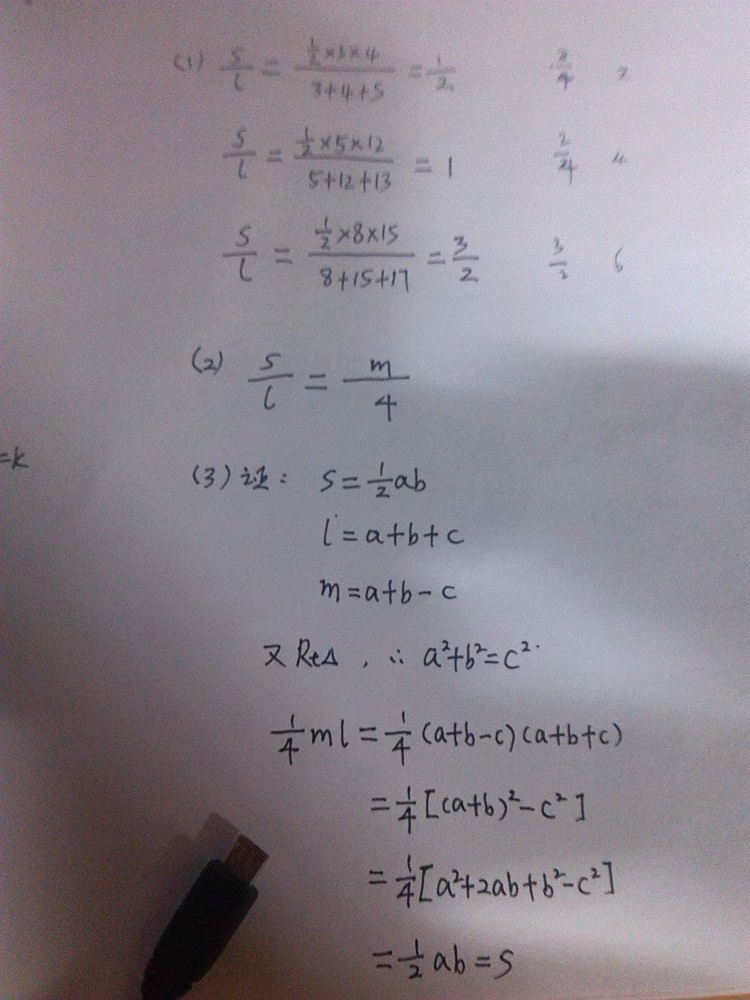 (1) S/l = (1/2×3×4)/(3+4+5) = 1/2 2/4 2
S/l = (1/2×5×12)/(5+12+13) = 1 2/4 4
S/l = (1/2×8×15)/(8+15+17) = 3/2 3/2 6
(2) S/l = m/4
=k
(3) 证: S=1/2ab
l=a+b+c
m=a+b-c
又Rt△, ∴ a²+b²=c²
1/4ml=1/4(a+b-c)(a+b+c)
=1/4[(a+b)²-c²]
=1/4[a²+2ab+b²-c²]
=1/2ab=S